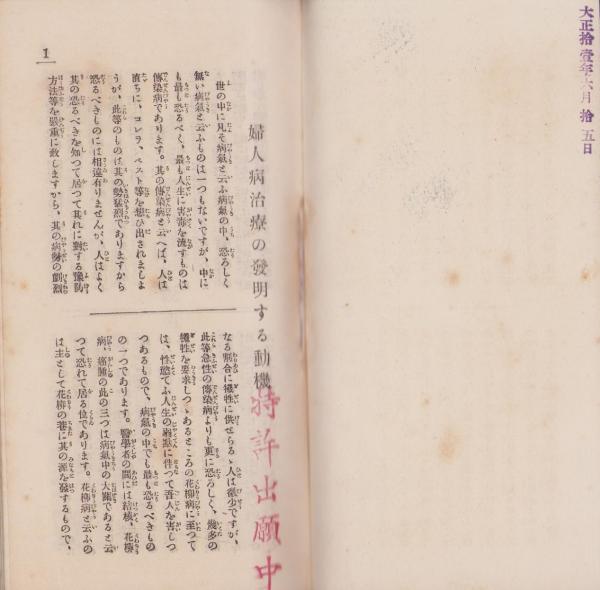 大正拾壹年六月拾五日
婦人病治療の發明する動機
特許出願中
世の中に凡そ病氣と云ふ病氣の中、恐ろしく
無い病氣と云ふものは一つもないですが、中に
も最も恐るべく、最も人生に害毒を流すものは
傳染病であります。其の傳染病と云へば、人は
直ちに、コレラ、ペスト等を想ひ出されましよ
うが、此等のものは其の勢猛烈でありますから
恐るべきものには相違有りませんが、人はよく
其の恐るべきを知つて居つて其れに對する豫防
方法等を嚴重に致しますから、其の病勢の劇烈
なる割合に犧牲に供せらるゝ人は僅少ですが、
此等急性の傳染病よりも更に恐ろしく、幾多の
犧牲を要求しつゝあるところの花柳病に至つて
は、性慾てふ人生の弱點に伴つて吾人を害しつ
つあるもので、病氣の中でも最も恐るべきもの
の一つであります。醫學者の間には結核、花柳
病、癌腫の此の三つは病氣中の大關であると云
つて恐れて居る位であります。花柳病と云ふの
は主として花柳の巷に其の源を發するもので、
1